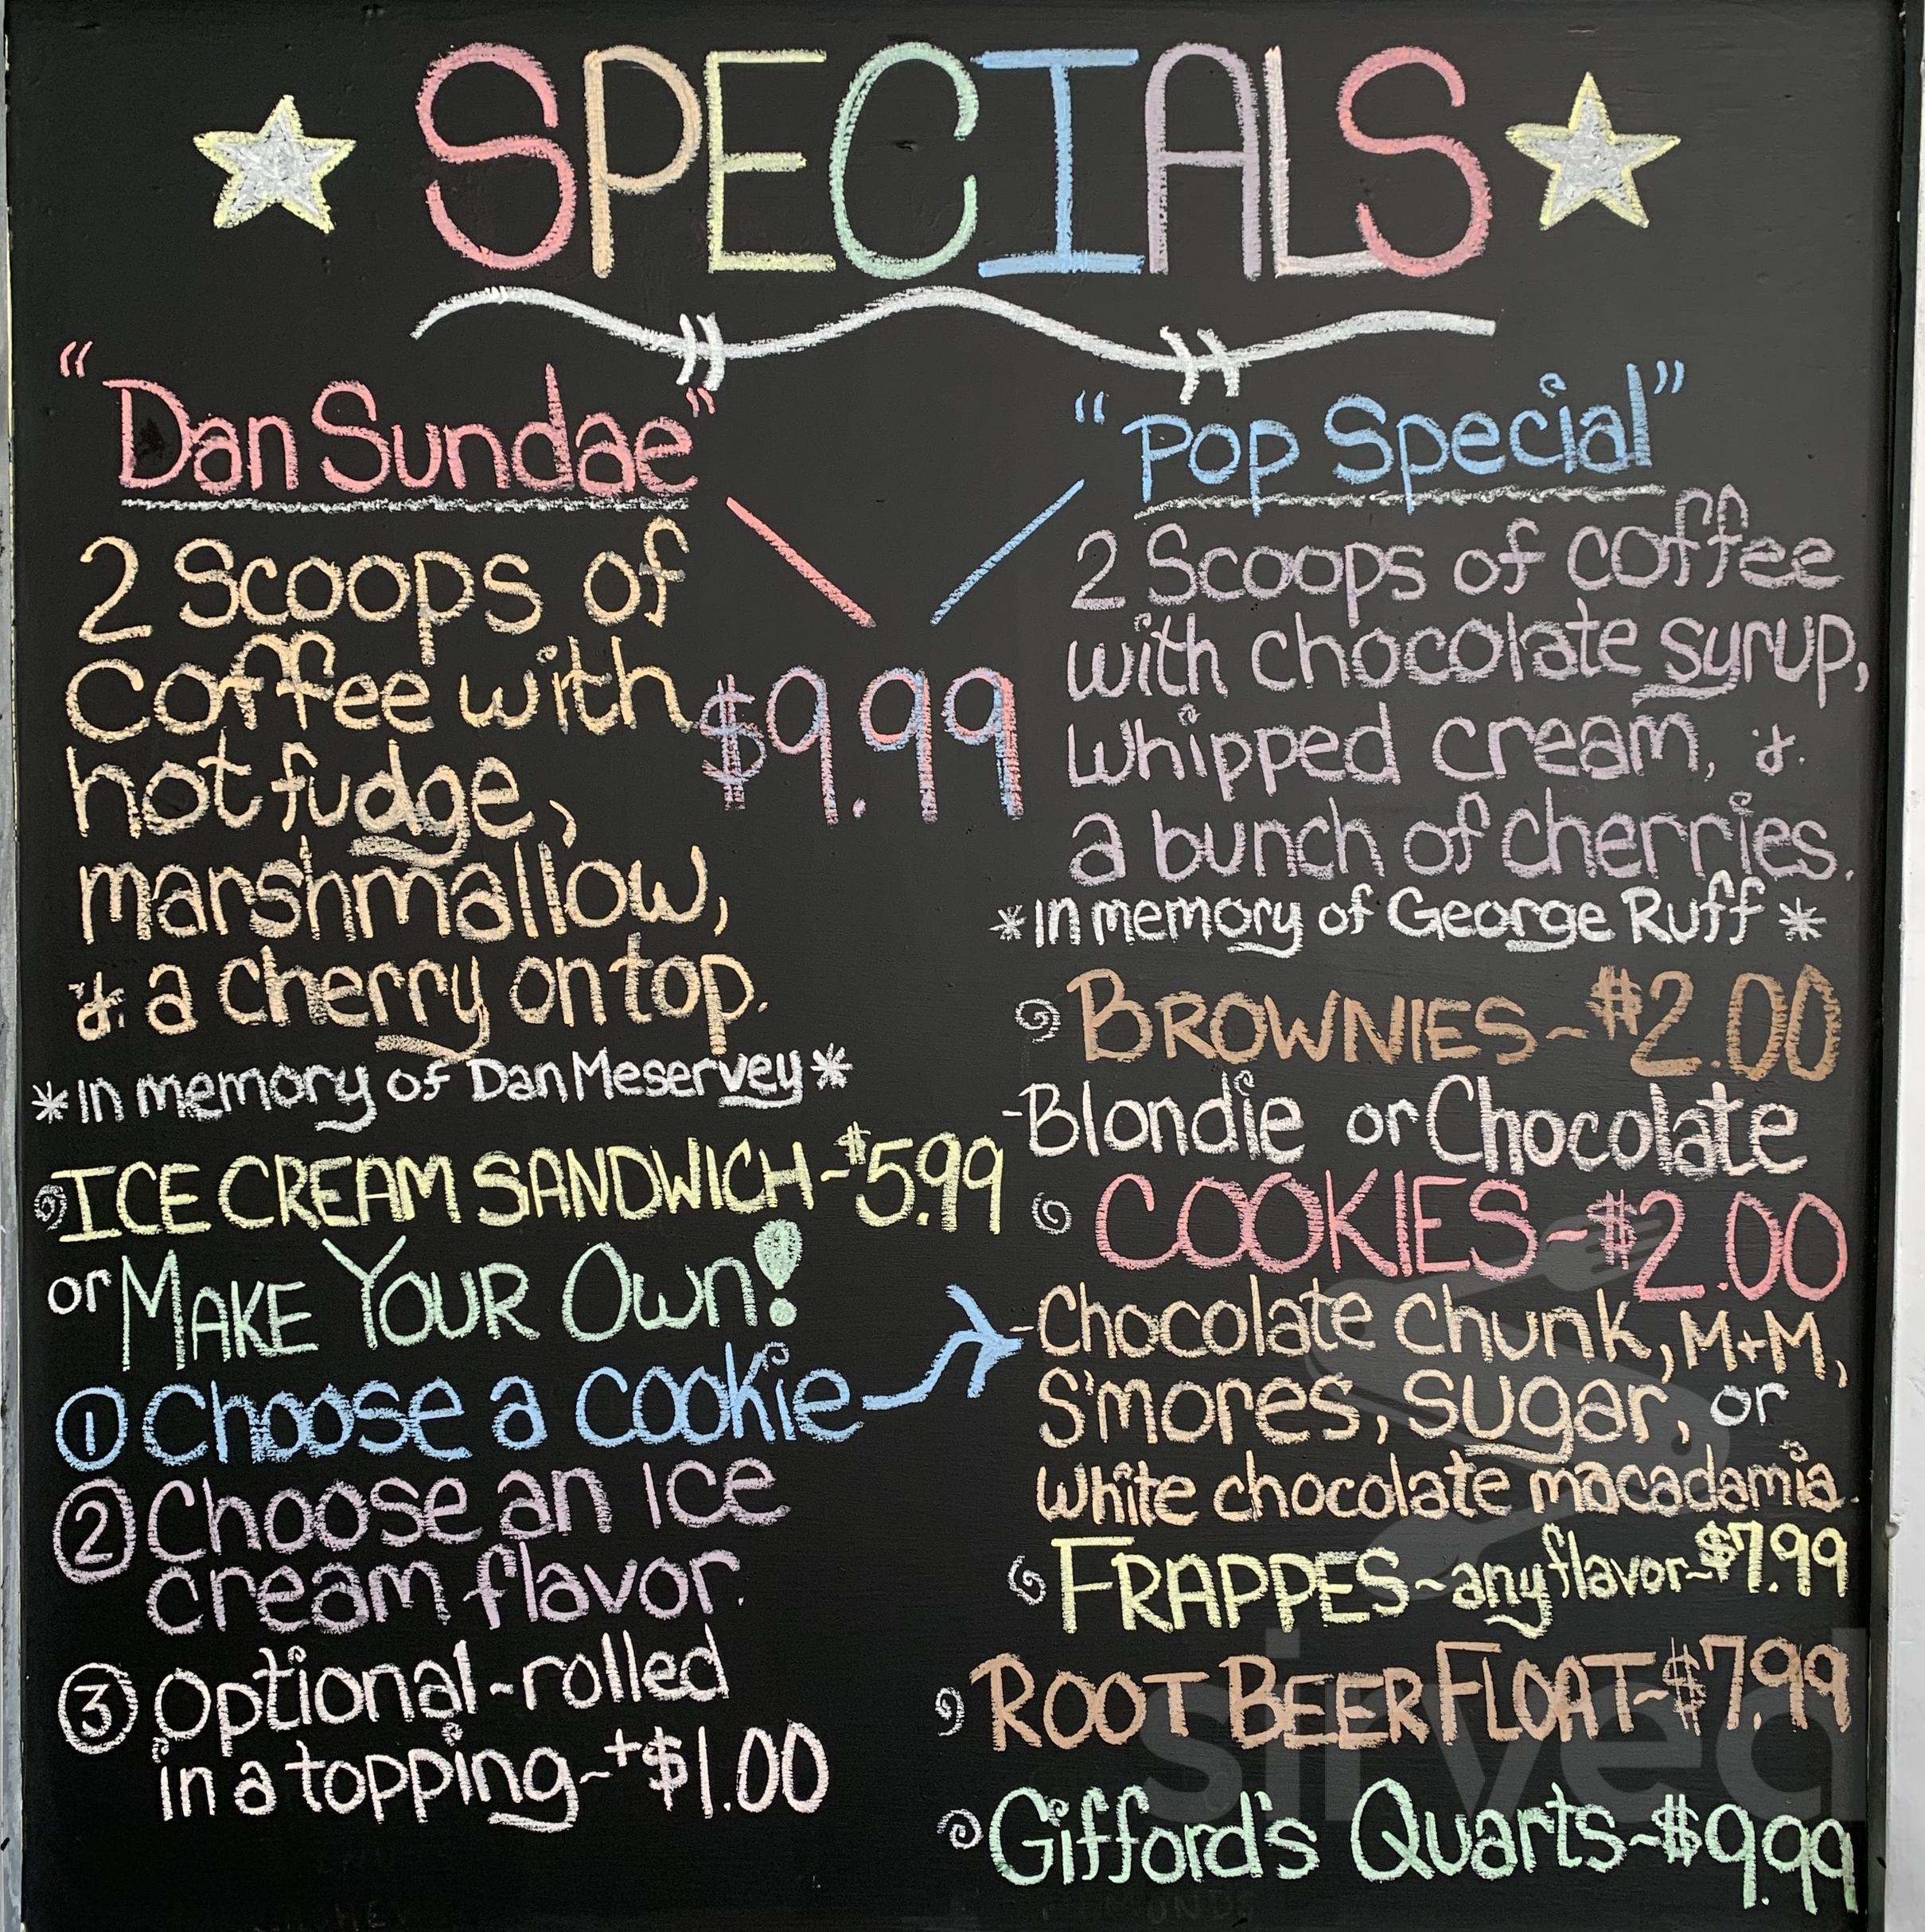 SPECIALS
"Dan Sundae"
2 Scoops of
Coffee with
hot fudge,
marshmallow,
& a cherry on top.
*In memory of Dan Meservey*
$9.99
"Pop Special"
2 Scoops of coffee
with chocolate syrup,
whipped cream, &
a bunch of cherries.
*In memory of George Ruff*
ICE CREAM SANDWICH~$5.99
or MAKE YOUR OWN!
① Choose a cookie
② Choose an ice
cream flavor.
③ Optional-rolled
in a topping~+$1.00
BROWNIES~$2.00
-Blondie or Chocolate
COOKIES~$2.00
-Chocolate Chunk, M+M,
S'mores, sugar, or
white chocolate macadamia.
FRAPPES~any flavor~$7.99
ROOT BEER FLOAT~$7.99
Gifford's Quarts~$9.99
sirved